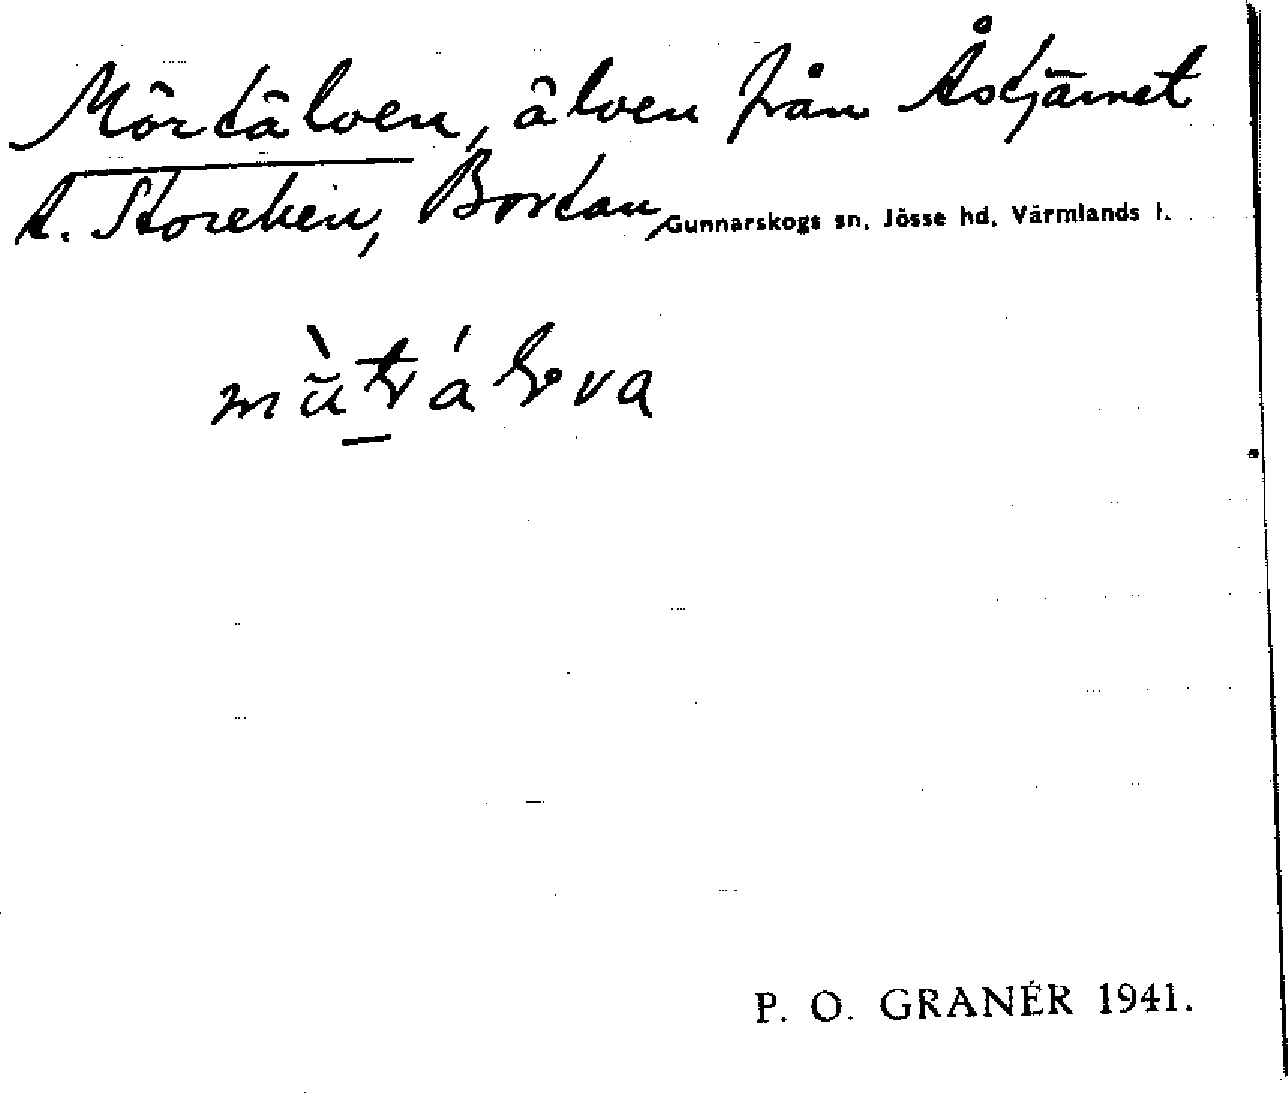 Mörtälven, älven från Åstjärnet
t. Storeken, Bortan, Gunnarskogs sn, Jösse hd, Värmlands l.
P. O. GRANÉR 1941.